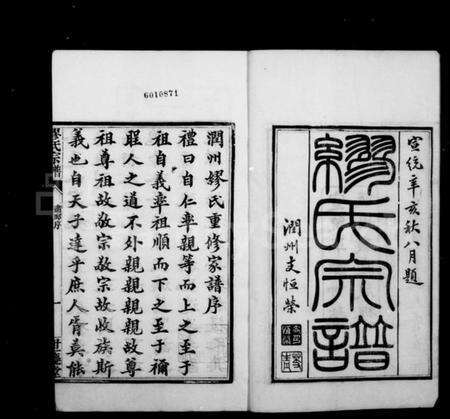 宣統辛亥秋八月題
繆氏宗譜
潤州支恒榮
6010871
潤州繆氏重修家譜序
禮曰自仁率親等而上之至于
祖自義率祖順而下之至于禰
人之道不外親親親親故尊
祖尊祖故敬宗敬宗故收族斯
義也自天子達乎庶人胥莫能
繆氏宗譜
序
一